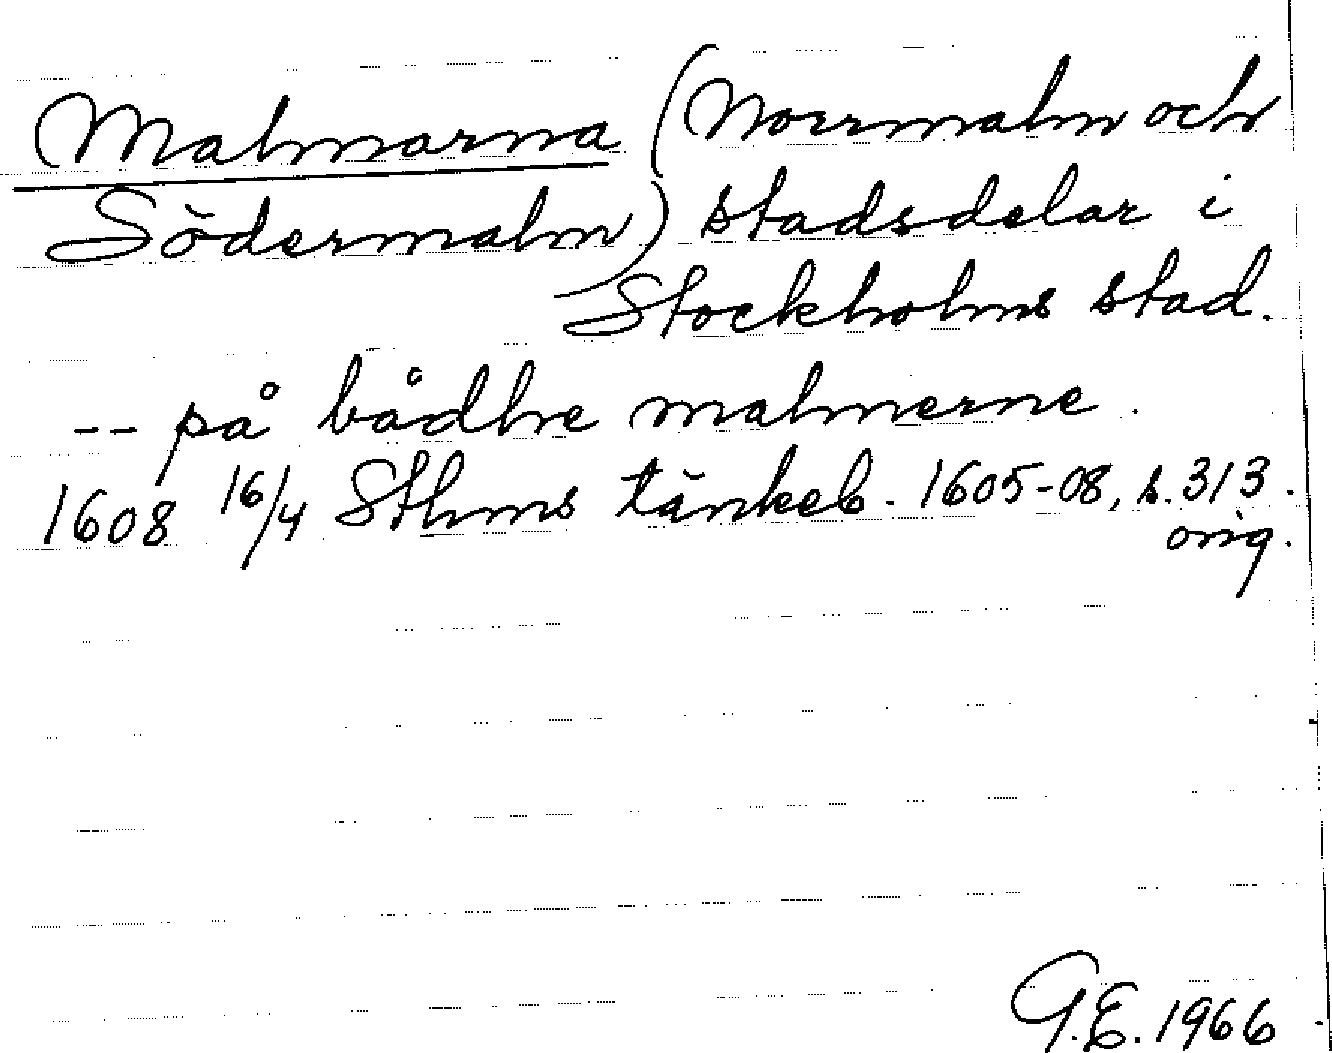 Malmarna (Norrmalm och
Södermalm) stadsdelar i
Stockholms stad.
-- på bådhe malmerne.
1608 16/4 Sthms tänkeb. 1605-08, s. 313.
orig.
G.E. 1966